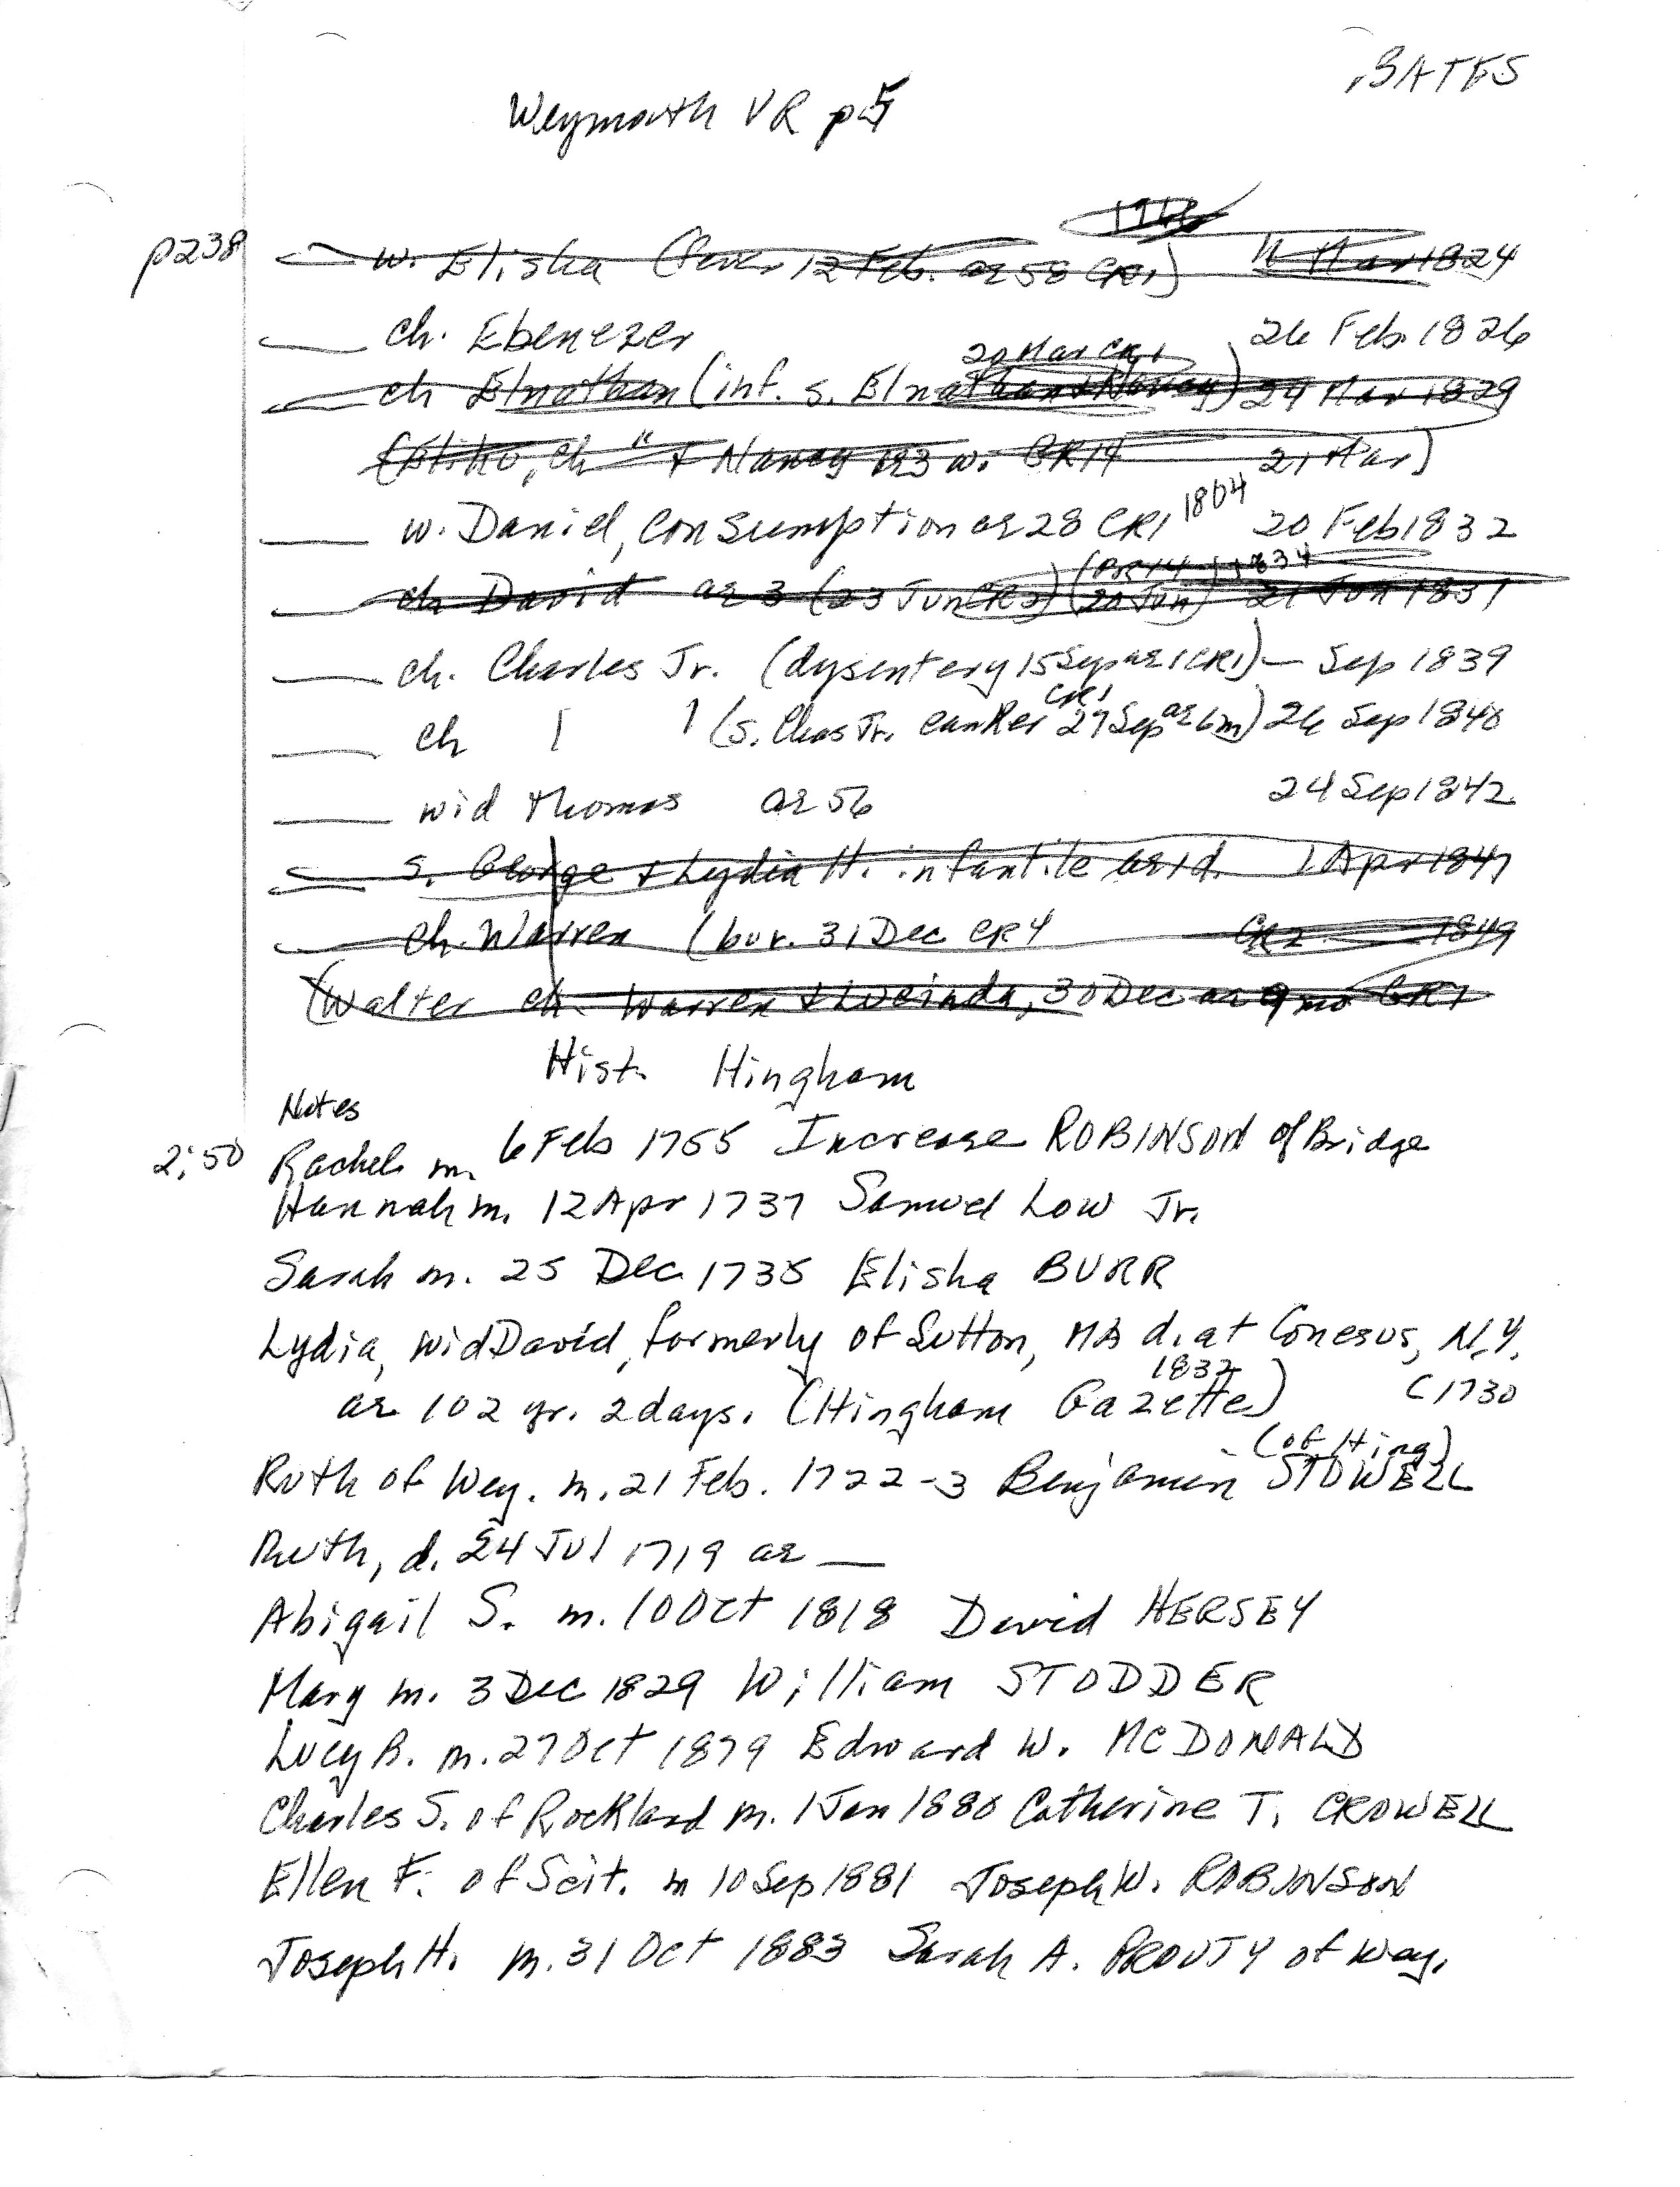 BATES
Weymouth VR p5
p238 — w. Elisha (fever 12 Feb. ae 58 CR1) Mar 1824
— ch. Ebenezer 26 Feb. 1826
20 Mar CR1
— ch Elnathan (inf. s. Elnathan & Nancy) 24 Mar 1829
ch " & Nancy 193 w. CR14 21 Mar)
— w. Daniel, consumption ae 28 CR1 1804 20 Feb 1832
(PR14) 1834
— ch David ae 3 (23 Jun CR2) (20 Jun) 21 Jun 1831
— ch. Charles Jr. (dysentery 15 Sep ae 1 CR1) — Sep 1839
— ch [ ] (s. Chas Jr. canker CR1 27 Sep ae 6m) 26 Sep 1840
— wid Thomas ae 56 24 Sep 1842
— s. George & Lydia H. infantile ae 1d. 1 Apr 1847
— ch. Warren (bur. 31 Dec CR4 CR2 1849
(Walter ch. Warren & Lucinda, 30 Dec ae 9 mo CR1
Hist. Hingham
Notes
2:50 Rachel m. 6 Feb 1755 Increase ROBINSON of Bridge
Hannah m. 12 Apr 1737 Samuel Low Jr.
Sarah m. 25 Dec. 1735 Elisha BURR
Lydia, wid David, formerly of Sutton, MA d. at Conesus, N.Y.
1832
ae 102 yr. 2 days. (Hingham Gazette) C 1730
(of Hing)
Ruth of Wey. m. 21 Feb. 1722-3 Benjamin STOWELL
Ruth, d. 24 Jul 1719 ae —
Abigail S. m. 10 Oct 1818 David HERSEY
Mary m. 3 Dec 1829 William STODDER
Lucy B. m. 27 Oct 1879 Edward W. MCDONALD
Charles S. of Rockland m. 1 Jan 1880 Catherine T. CROWELL
Ellen F. of Scit. m 10 Sep 1881 Joseph W. ROBINSON
Joseph H. m. 31 Oct 1883 Sarah A. PROUTY of Wey.